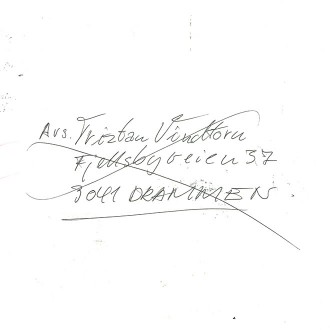 Avs. Tristan Vindtorn
Fjellsbyveien 37
3041 DRAMMEN